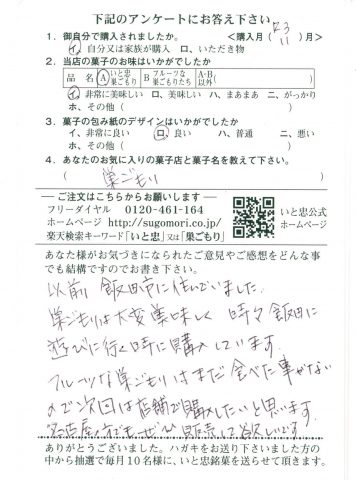 下記のアンケートにお答え下さい
1. 御自分で購入されましたか。 <購入月( R3 11 )月>
イ、自分又は家族が購入 ロ、いただき物
2. 当店の菓子のお味はいかがでしたか
品名 A いと忠巣ごもり B フルーツな巣ごもりたち A・B以外( )
イ、非常に美味しい ロ、美味しい ハ、まあまあ ニ、がっかり
ホ、その他( )
3. 菓子の包み紙のデザインはいかがでしたか
イ、非常に良い ロ、良い ハ、普通 ニ、悪い
ホ、その他( )
4. あなたのお気に入りの菓子店と菓子名を教えて下さい。
( 巣ごもり )
ご注文はこちらからお願いします
フリーダイヤル 0120-461-164
ホームページ http://sugomori.co.jp/
楽天検索キーワード「いと忠」又は「巣ごもり」
いと忠公式
ホームページ
あなた様がお気づきになられたご意見やご感想をどんな事
でも結構ですのでお書き下さい。
以前 飯田市に住んでいました。
巣ごもりは大変美味しく 時々飯田に
遊びに行く時に購入しています。
フルーツな巣ごもりはまだ食べた事がない
ので次回は店舗で購入したいと思います。
名古屋の方でもぜひ販売して欲しいです
ありがとうございました。ハガキをお送り下さいました方
の中から抽選で毎月10名様に、いと忠銘菓を送らせて頂きます。